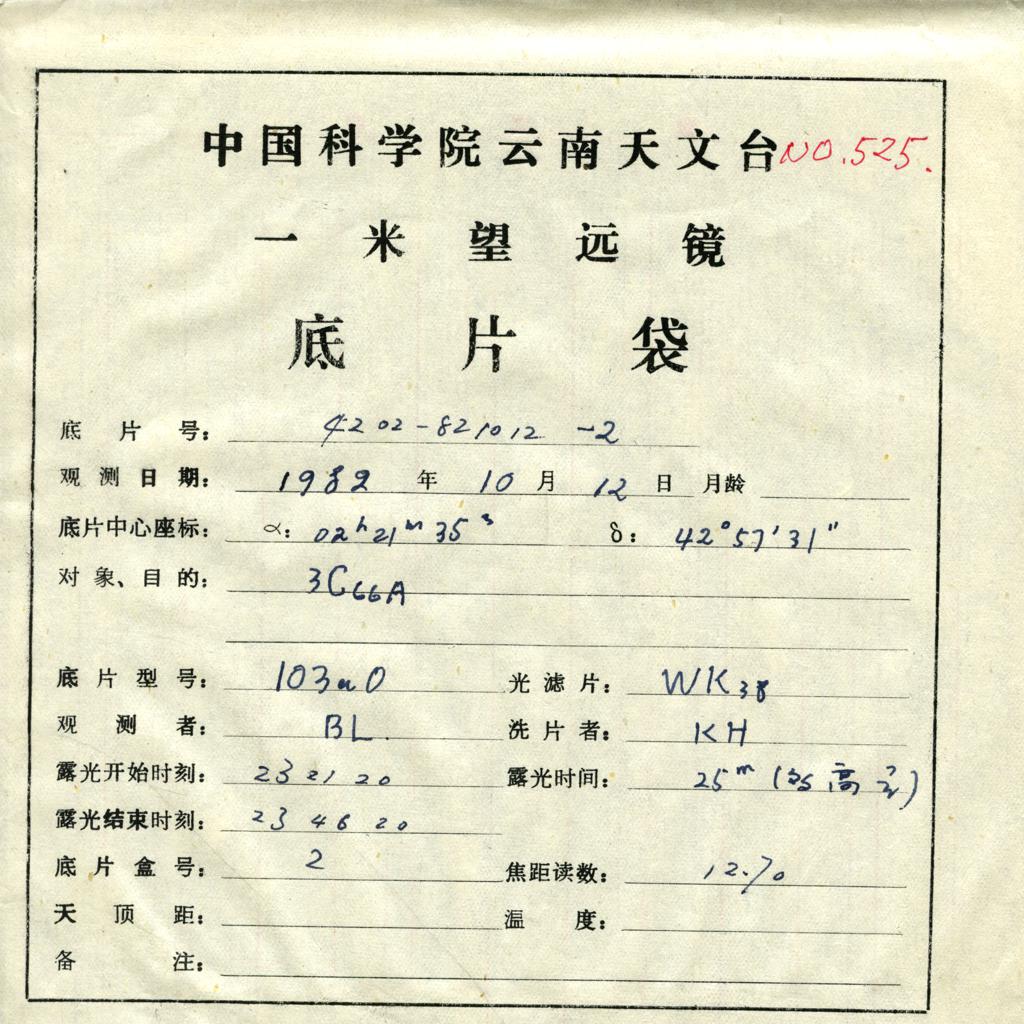 中国科学院云南天文台 NO.525.
一米望远镜
底片袋
底片号: 4202-821012-2
观测日期: 1982 年 10 月 12 日 月龄
底片中心座标: α: 02ʰ21ᵐ35ˢ δ: 42°57′31″
对象、目的: 3C66A
底片型号: 103aO 光滤片: WK38
观测者: BL. 洗片者: KH
露光开始时刻: 23 21 20 露光时间: 25ᵐ ( 高云)
露光结束时刻: 23 46 20
底片盒号: 2 焦距读数: 12.70
天顶距: 温度:
备注: